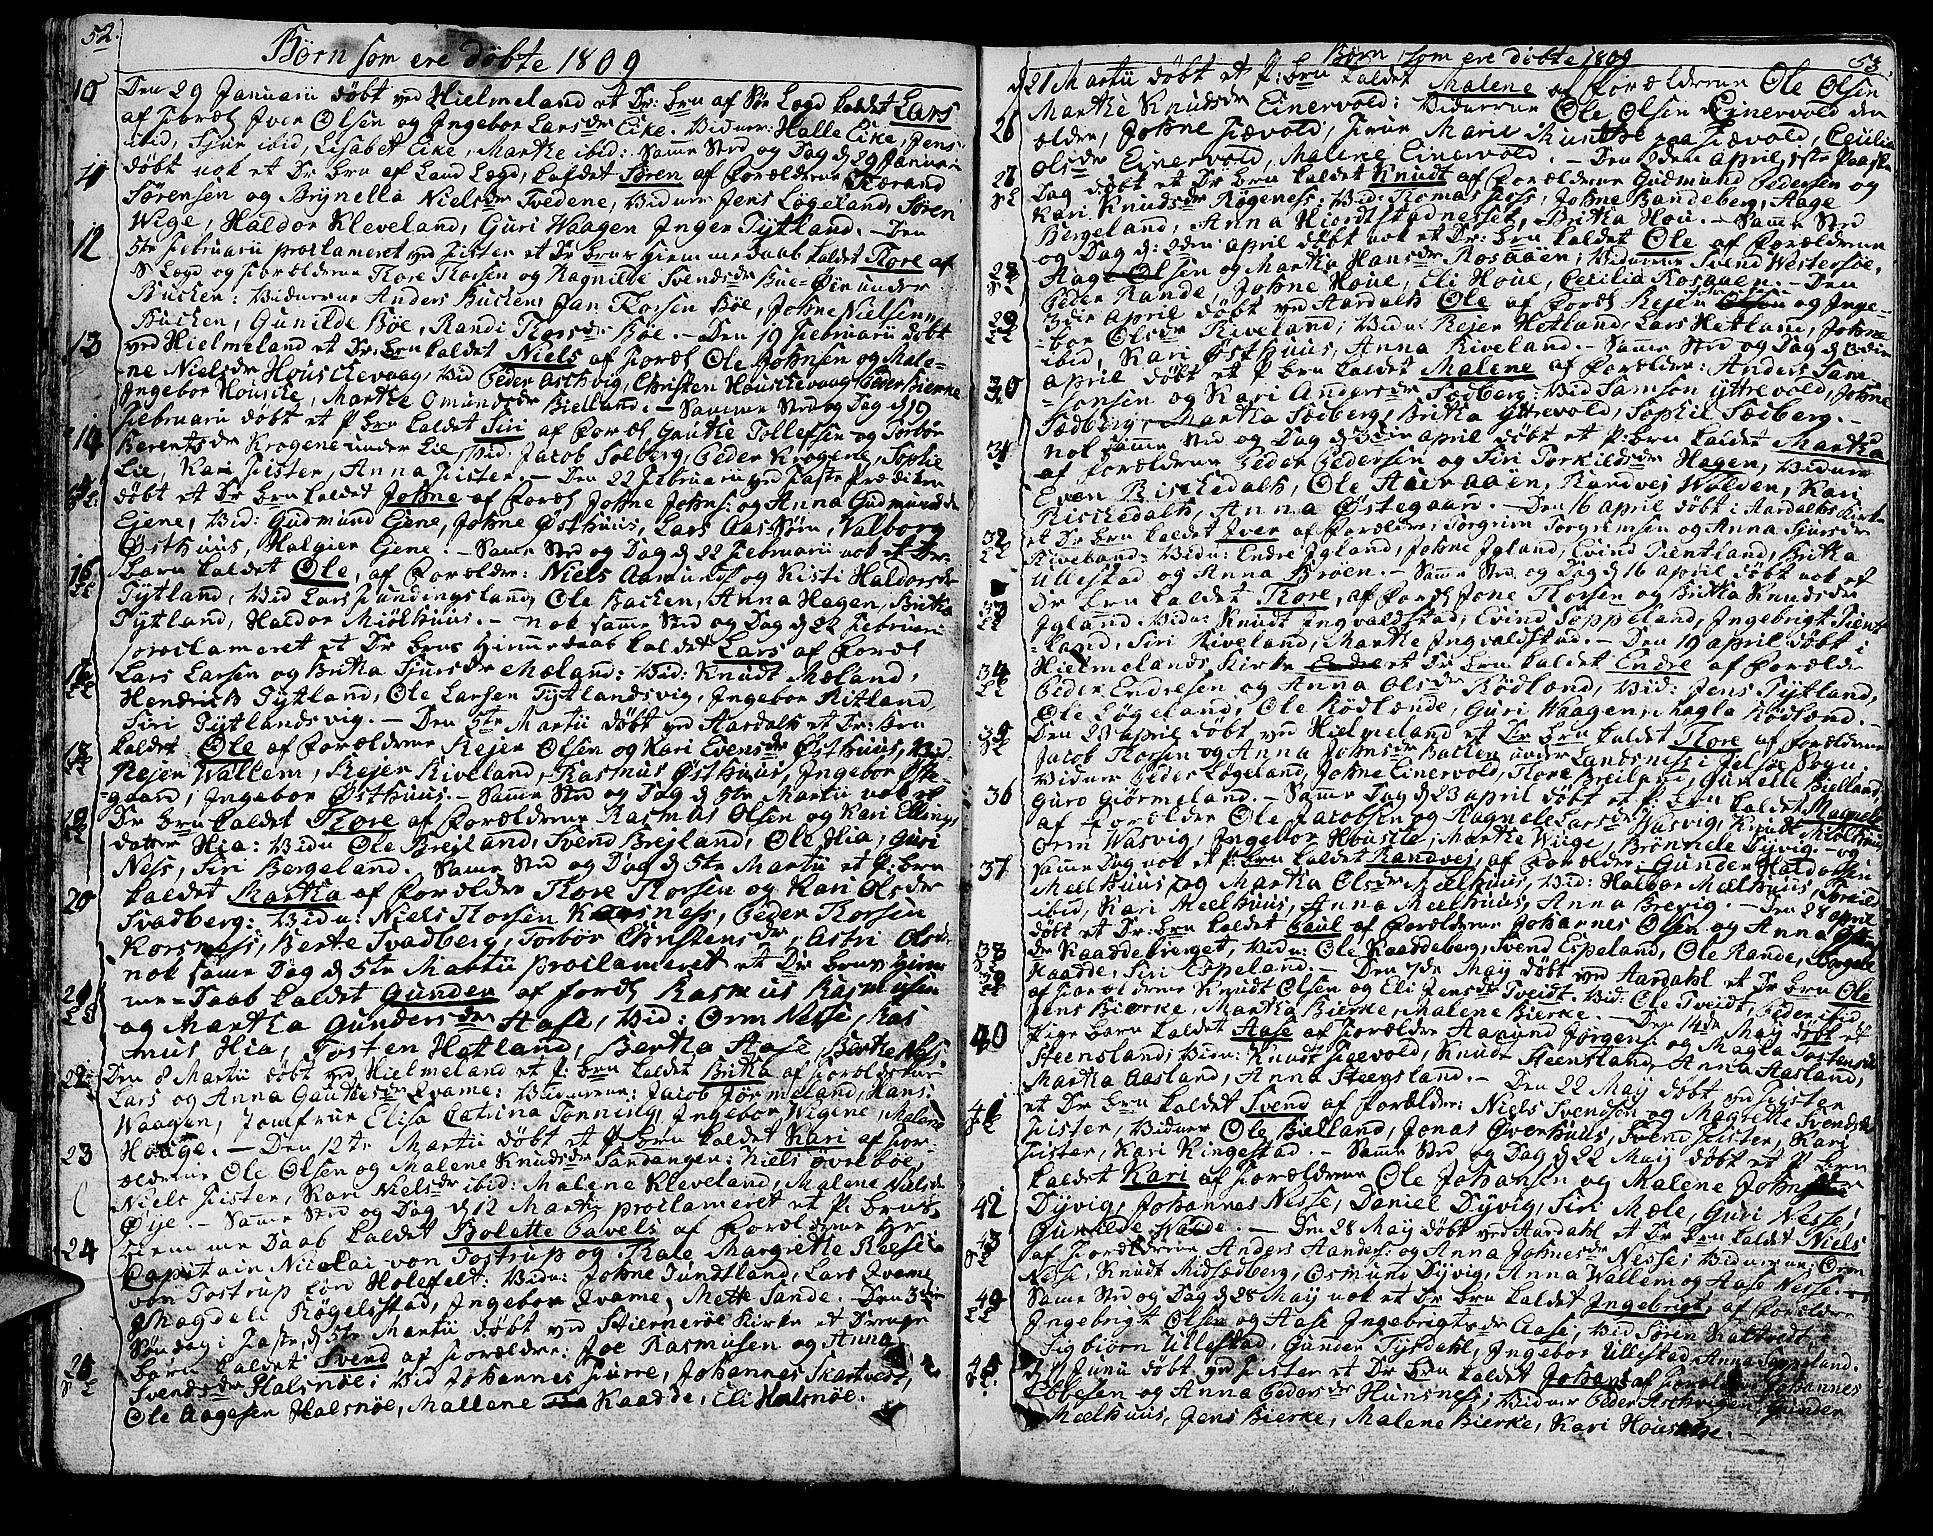 52.
Børn som ere døbte 1809
10 Den 29 Januarii døbt ved Hielmeland et Dr: brn af Søe Lægd kaldet Lars
af Foræl Iver Olsen og Ingebor Larsdr Eike. Vidner: Halle Eike, Jens
ibid, Siur ibid, Lisabet Eike, Martke ibid: Samme Sted og Dag d 29 Januarii
11 døbt nok et Dr brn af Land Lægd, kaldet Søren af Forældrene
Sørensen og Brynella Nielsdr Tvedene, Vidner Jens Løgeland, Søren
Wige, Haldor Kleveland, Guri Waagen Inger Tytland. - Den
12 5te Februarii proclameret ved Fister et Dr brns Hiemmedaab kaldet Tkore af
S Lægd og Forældrene Tkore Tkorsen og Ragnilde Svendsdr Bue-Øen under
Backen: Vidnerne Anders Backen, Jan Tkorsen Bøe, Johne Nielsen
Backen, Gunilde Bøe, Randi Tkorsdr Bøe. - Den 19 Februarii døbt
13 ved Hielmeland et Dr: brn kaldet Niels af Foræl Ole Johnsen og Male-
ne Nielsdr Houschevaag, Vid Peder Aschvig, Christen Houschevaag Peder Bierke
Ingebor Houscke, Martke Omundsdr Bielland. - Samme Sted og Dag d 19
14 Februarii døbt et P brn kaldet Siri af Foræl Gautke Tollefsen og Torbor
Berentsdr Krogene under Lie, Vid: Jacob Solberg, Peder Krogene, Sophie
Lie, Kari Fister, Anna Fister. - Den 22 Februarii ved Faste Prædiken
døbt et Dr brn kaldet Johne af Foræl Johne Johns: og Anna Gudmundsdr
Ejene, Vid: Gudmund Ejene, Johne Østhuus, Lars Aas-Søn, Valborg
Østhuus, Halgier Ejene. - Samme Sted og Dag d 22 Februarii nok et Dr
16 barn kaldet Ole, af Forældre: Niels Aamunds og Kisti Haldorsdr
Tytland, Vid Lars Fundingsland, Ole Backen, Anna Hagen, Britka
Tytland, Haldor Miølhuus. - nok samme Sted og Dag d 22 Februarii
proclameret et Dr brns Himmedaab kaldet Lars af Foræl
Lars Larsen og Britka Siursdr Mæland: Vid: Knudt Mæland,
Hendrich Tytland, Ole Larsen Tytlandsvig, Ingebor Ritland
Siri Tytlandsvig. - Den 5te Martii døbt ved Aardalk et Dr: brn
kaldet Ole af Forældrene Rejer Olsen og Kari Evensdr Østhuus, Vid
Rejer Wallem, Rejer Riveland, Rasmus Østhuus, Ingebor Øste-
gaard, Ingebor Østhuus. - Samme Sted og Dag d 5te Martii nok et
Dr brn kaldet Tkore af Forældrene Rasmus Olsen og Kari Ellings
datter Hia: Vidn Ole Brejland, Svend Brejland, Ole Hia, Guri
Nes, Siri Bergeland. Samme Sted og Dag d 5te Martii et P: brn
20 kaldet Martka af Forældre Tkore Tkorsen og Kari Olsdr
Svadberg: Vidn: Niels Tkorsen Korsness, Peder Tkorsen
Korsness, Berte Svadberg, Torbør Christensdr, Astri Olsdr
nok samme Dag d 5te Martii proclameret et Dr brns Hiem
me-Daab kaldet Gunder af Foræl Rasmus Rasmusen
og Martka Gundersdr Aase, Vid: Orm Nesse, Ras
mus Hia, Tosten Hetland, Bertka Aase,
22 Den 8 Martii døbt ved Hielmeland et P: brn kaldet Britka af Forældrene
Lars og Anna Gautkesdr Qvame: Vidnerne: Jacob Jørmeland, Hans
Waagen, Jomfrue Elisa Catrina Tonning, Ingebor Wigene, Malene
23 Houge. - Den 12te Martii døbt et P brn kaldet Kari af For-
ældrene Ole Olsen og Malene Knudsdr Sandanger: Niels Øvrebøe,
Niels Fister, Kari Nielsdr ibid: Malene Kleveland, Malene Nielsdr
Øye. - Samme Sted og Dag d 12 Martii proclameret et P: brns
24 hiemme Daab kaldet Bolette Pavels af Forældrene Hr
Capitain Nicolai von Tostrup og Kale Margrethe Reese
von Tostrup fød Holefelt: Vidn: Johne Sundtland, Lars Qvame
Magdeli Røgelsstad, Ingebor Qvame, Mette Sande. Den 3die
Søndag i Faste, d 5te Martii døbt ved Stiernerøe Kirke et Drenge
25 barn kaldet Svend af Forældre: Joe Rasmusen og Anna
Svendsdr Halsnøe: Vid Johannes Fiurre, Johannes Skartveit,
Ole Aagesen Halsnøe, Mallene Kaadde, Eli Halsnøe.
Børn som ere døbte 1809
53.
d 21 Martii døbt et P: brn kaldet Malene af Forældrene Ole Olsen
Martke Knudsdr Einervold: Vidnerne Ole Olsen Einervold den
26 ældre, Johne Fiævold, Jomfr Marie paa Fiævold, Cecilia
Olsdr Einervold, Malene Einervold. - Den 2den April, 1ste Paaske
27 Dag døbt et Dr brn kaldet Knudt af Forældrene Gudmund Pedersen og
Kari Knudsdr Røgeness: Vid: Tkomas Foss, Johne Bandeberg, Aage
Bergeland, Anna Hiortkstadnesset, Britka Hou. - Samme Sted
og Dag d: 2den April døbt nok et Dr: brn kaldet Ole af Forældrene
28 Aage Olsen og Martka Hansdr Rosaaen; Vidnerne Svend Westersøe,
Peder Rande, Johne Houe, Eli Houe, Cecilia Rosaaen. - Den
29 3die April døbt ved Aardalk Ole af Foræl Rejer Olsen og Inge-
bor Olsdr Riveland, Vidn: Rejer Hetland, Lars Hetland, Johne
ibid, Kari Østhuus, Anna Riveland. - Samme Sted og Dag d 3die
30 April døbt et P brn kaldet Malene af Forældre: Anders Sam-
sonsen og Kari Andersdr Sædberg: Vid Samson Yttrevold, Johne
Sædberg, Martka Sædberg, Britka Yttrevold, Sophie Sædberg. -
31 nok samme Sted og Dag d 3die April døbt et P: brn kaldet Martka
af Forældrene Peder Pedersen og Siri Torkildsdr Hagen, Vidnerne
Even Riskedalk, Ole Aaeraaen, Randvei Walden, Kari
Riskedalk, Anna Østegaard. - Den 16 April døbt i Aardalks Kirke
32 et Dr brn kaldet Iver af Forældre: Torgrim Torgrimsen og Anna Siursdr
Riveland: Vidn: Endre Igland, Johne Igland, Evind Tientland, Britka
Ullestad og Anna Brøen. - Samme Sted og Dag d 16 April døbt nok et
Dr brn kaldet Tkore, af Foræl Jone Tkorsen og Britka Knudsdr
33 Igland. Vidn: Knudt Ingvaldstad, Evind Soppeland, Ingebrigt Tient
land, Siri Riveland, Martke Ingvaldstad. - Den 19 April døbt i
34 Hielmelands Kirke et Dr brn kaldet Endre af Forældre
Peder Endresen og Anna Olsdr Rødland, Vid: Jens Tytland,
Ole Løgeland, Ole Rødlande, Guri Waagen, Magla Rødland. -
35 Den 23 April døbt ved Hielmeland et Dr brn kaldet Tkore af Forældrene
Jacob Tkorsen og Anna Johnsdr Backen under Landsness i Jelsøe Sogn.
Vidner Peder Løgeland, Johne Einervold, Tkore Breiland, Gunelle Bielland,
36 Guro Giørmeland. - Samme Dag d 23 April døbt et P: brn kaldet Magnele
af Forældre Ole Jacobsen og Ragnele Larsdr Wasvig, Knudt Miølhuus
Orm Wasvig, Ingebor Houscke, Martke Wiige, Brønnele Dyvig. - og
37 samme Dag nok et P: brn kaldet Randvei, af Forældre: Gunder Haldorsen
Meelhuus og Martka Olsdr Meelhuus, Vid: Haldor Meelhuus, Toraild
ibid, Kari Meelhuus, Anna Meelhuus, Anna Brevig. - Den 28 April
38 døbt et Dr: brn kaldet Paul af Forældrene Johannes Olsen og Anna
dr Kaaddebierget, Vidn: Ole Kaaddeberg, Svend Espeland, Ole Rande, Borgele
39 Haadde, Siri Espeland. - Den 7de May døbt ved Aardahl et Dr brn Ole
af Forældrene Knudt Olsen og Eli Jensdr Tveidt. Vid: Ole Tveidt, Peder ibid,
Jens Bierke, Martka Bierke, Malene Bierke. - Den 14de May døbt et
40 Pige barn kaldet Aase af Forældre Aamund Jørgens: og Magla Tostensdr
Steensland, Vidn: Knudt Figevold, Knudt Steensland, Anna Aasland,
Martka Aasland, Anna Steensland. - Den 22 May døbt ved Fister
41 et Dr brn kaldet Svend af Forældre: Niels Svendsen og Magrette Svendsdr
Fister, Vidner Ole Bielland, Jonas Øverhuus, Svend Fister, Kari
Fister, Kari Ringestad. - Samme Sted og Dag d 22 May døbt et P. brn
kaldet Kari af Forældrene Ole Johansen og Malene Johnsdr
42 Dyvig, Johannes Nesse, Daniel Dyvig, Siri Mæle, Guri Nesse,
Gunilde Haadde. - Den 28 May døbt ved Aardahl, et Dr brn kaldet Niels
43 af Forældrene Anders Anders: og Anna Johnesdr Nesse; Vidnerne; Orm
Nese, Knudt Midsædberg, Osmund Dyvig, Anna Wallem og Aase Nesse. -
Samme Sted og Dag d 28 May nok et Dr brn kaldet Ingebrigt, af Forældre
Ingebrigt Olsen og Aase Ingebrigtsdr Aase, Vid Søren Kaltvedt,
Sigbiørn Ullestad, Gunder Tysdahl, Ingebor Ullestad Anna Soppeland.
d 11 Junii døbt ved Fister et Dr brn kaldet Johans af Forældre Johannes
Ebbesen og Anna Pedersdr Hunsness; Vidner Peder Aschvigen, Gunder
Meelhuus, Jens Bierke, Malene Bierke, Kari Houscke. -